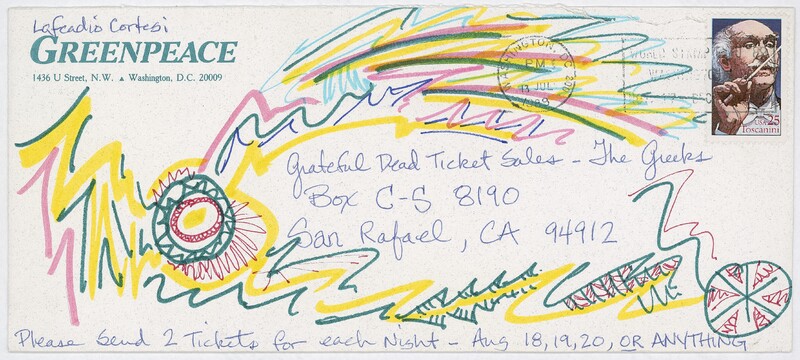 Lafcadio Cortesi
GREENPEACE
1436 U Street, N.W. ▲ Washington, D.C. 20009
WASHINGTON, DC
PM
13 JUL
1989
WORLD STAMP
USA 25
Toscanini
Grateful Dead Ticket Sales - The Greeks
Box C-S 8190
San Rafael, CA 94912
Please Send 2 Tickets for each Night - Aug 18, 19, 20, OR ANYTHING